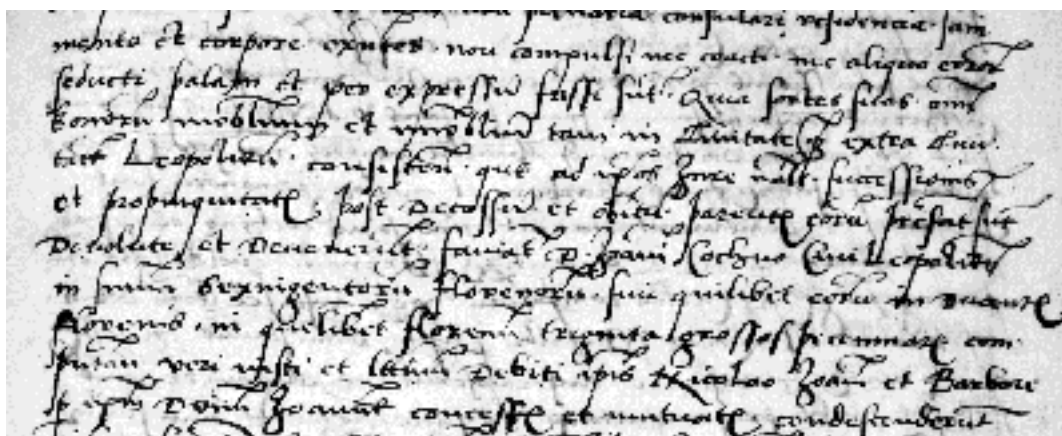 pecuniaria consulari residencia sani
mente et corpore exntes non compulsi nec coacti nec aliquo error
seducti palam et per expressum fassi sut Quia sortes suas omi
bonoru mobilium et imobiliu tam in Civitate q extra Civi
tate Leopolien consisten que ad ipos Jure nall successionis
et propinquitatis post decessu et obitu parentu eoru prefat sut
devolute et devenerut famat d Joani Cochno Civi Leopolien
in suma Sexingentoru florenoru sui quilibet eoru in ducent
florenis in quelibet florenu triginta grossos pecuniar com
putan veri iusti et lttimi debiti ipis Nicolao Joani et Barbore
p ipm Dnum Joanne concess et mutuat condescenderut